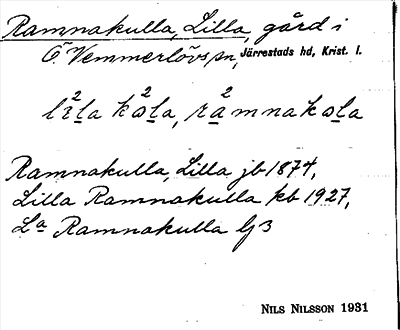 Ramnakulla, Lilla, gård i
Ö. Vemmerlövs sn, Järrestads hd, Krist. l.
Ramnakulla, Lilla jb 1874,
Lilla Ramnakulla kb 1927,
La Ramnakulla Gj 3
NILS NILSSON 1931